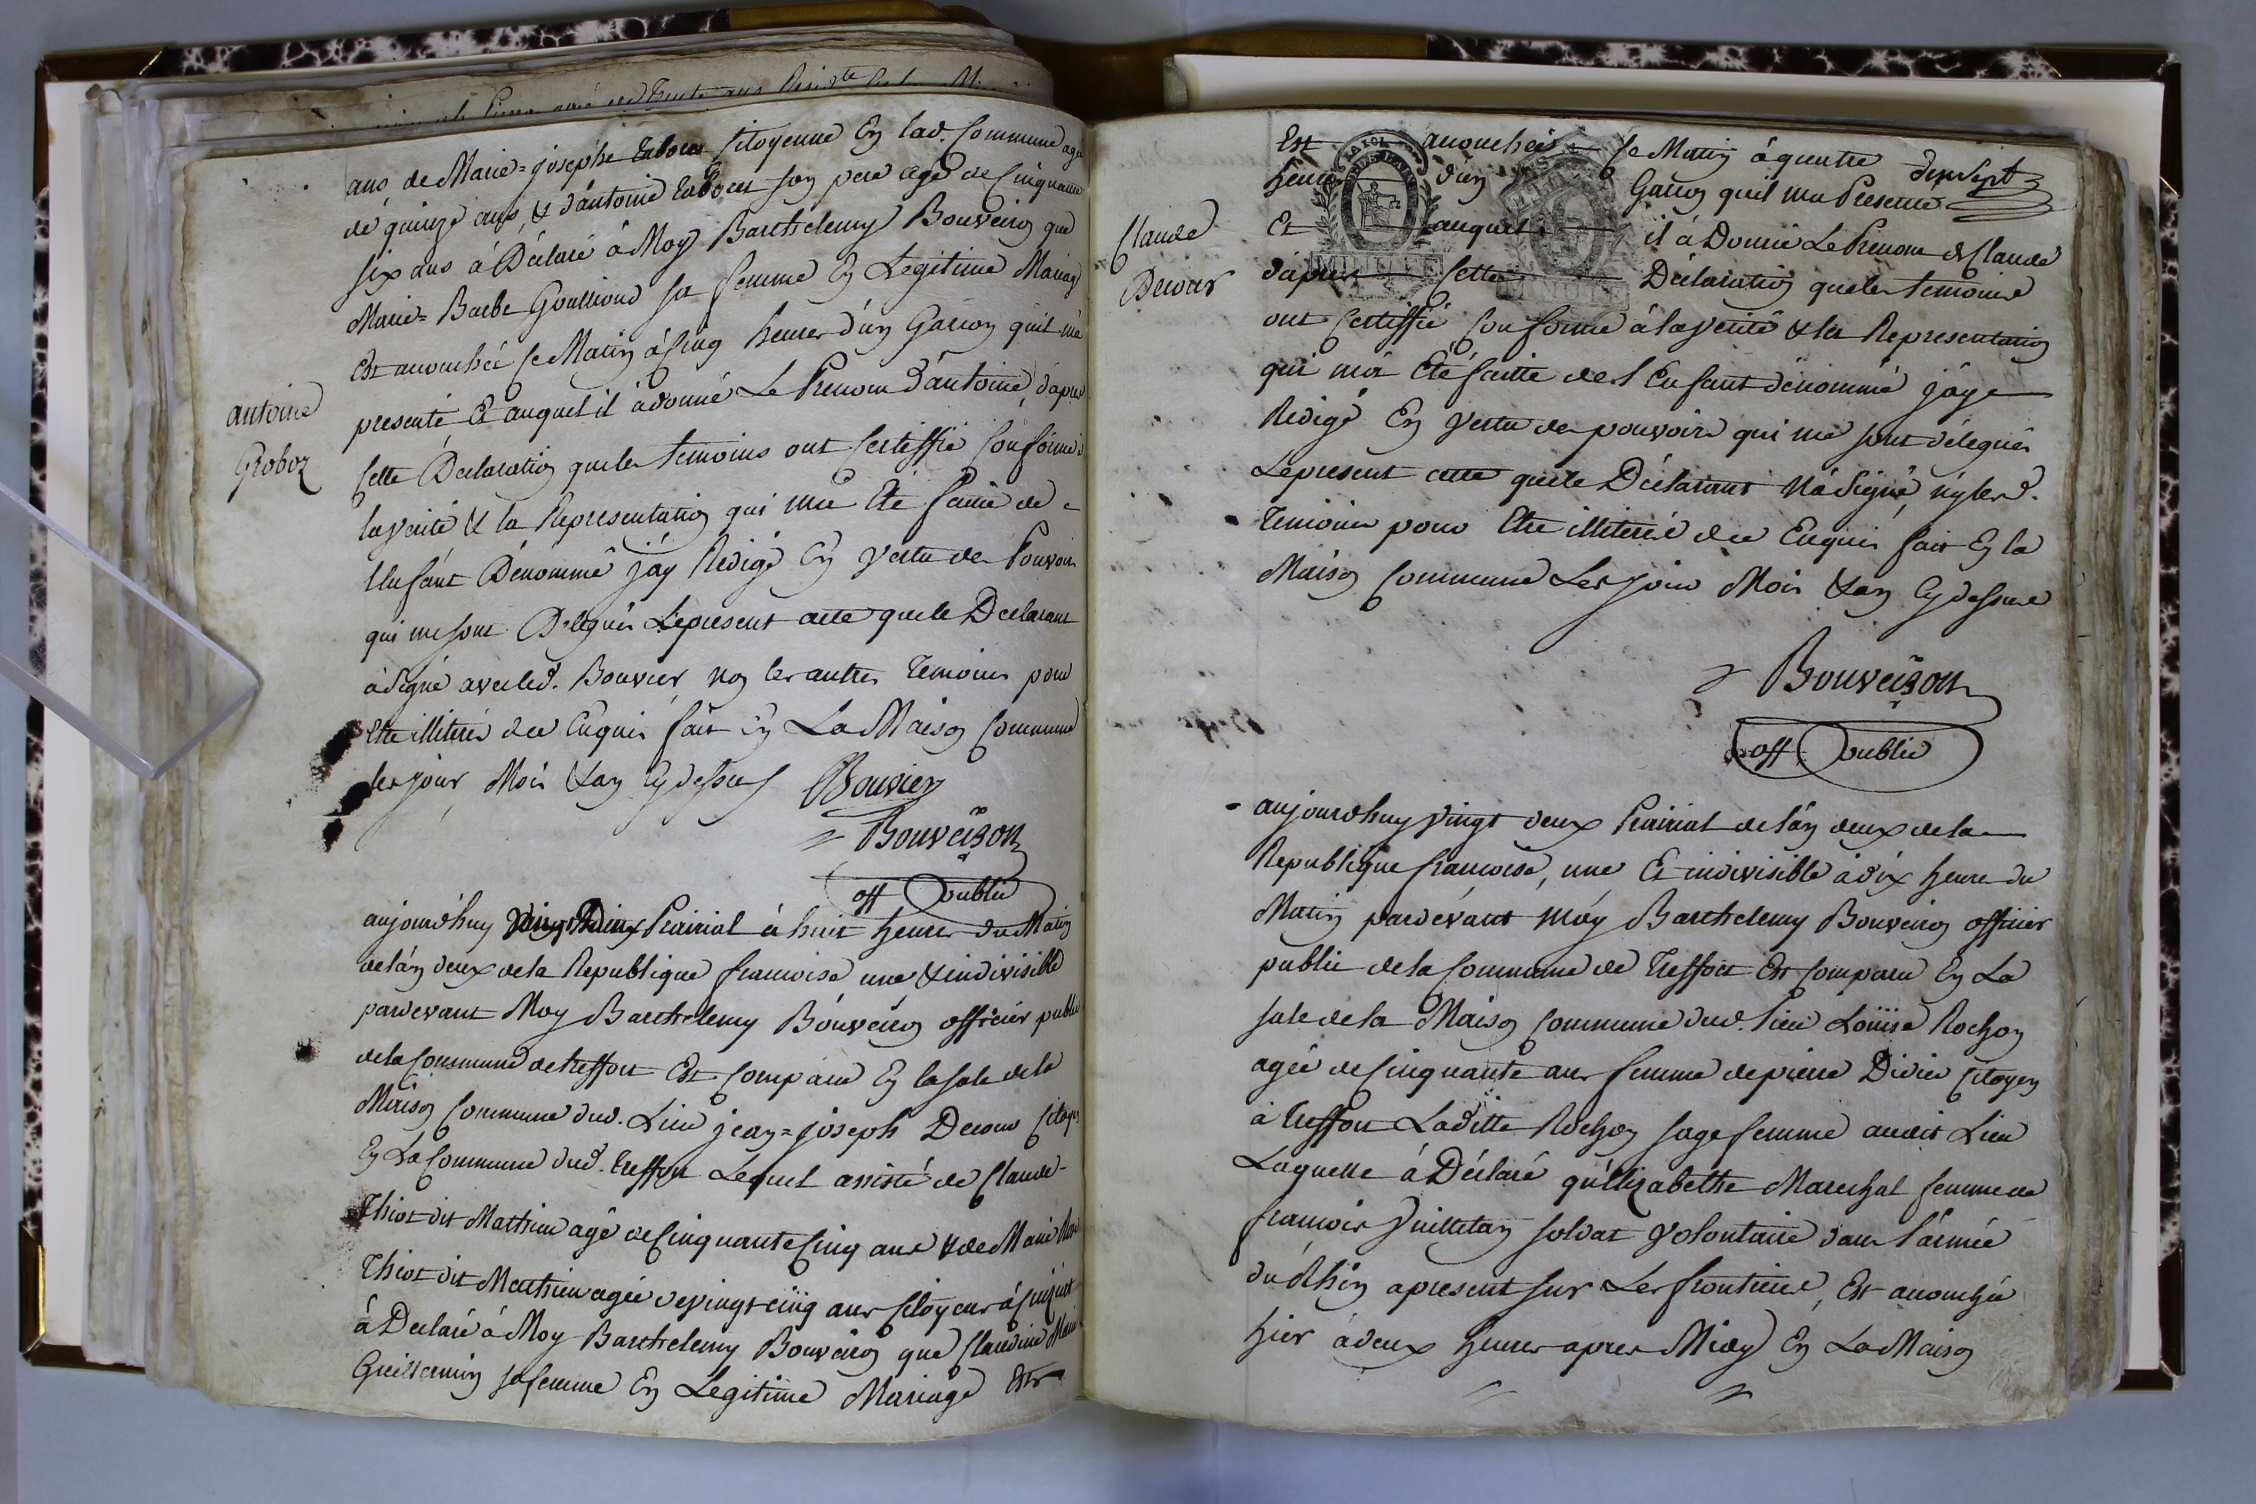 ans de Marie=josephe citoyenne En lad. Commune agée
de quinze ans, & d'antoine son pere agé de Cinquante
six ans à Déclaré à Moy Barthélemy Bouveiron que
Marie=Barbe Goullioud sa femme En Legitime Mariage
Est acouchée Ce Matin à Cinq heures d'un Garçon quil m'a
presenté Et auquel il a donné Le Prenom d'antoine, d'apres
Cette Declaration que les temoins ont Certiffié Conforme à
la verité & la Representation qui m'a Eté faitte de
L'Enfant Dénommé j'ay Redigé En vertu des Pouvoirs
qui me sont Délégués Le present acte que le Declarant
à Signé avec led. Bouvier non les autres Temoins pour
Etre illiterés de ce Enquis fait En La Maison Commune
les jour, Mois & an Cydessus Bouvier
Bouveiron
off public
antoine
Groboz
aujourd'huy Prairial à huit heures du Matin
de l'an deux de la Republique francoise une & indivisible
pardevant Moy Barthelemy Bouveiron officier public
de la Commune de treffort Est Comparu En la sale de la
Maison Commune dud. Lieu jean=joseph Decour Citoyen
En La Commune dud. treffort Lequel assisté de Claude
Thiot dit Mathieu agé de Cinquante Cinq ans & de Marie
Thiot dit Mathieu agée de vingt cinq ans Citoyens
à Declaré à Moy Barthelemy Bouveiron que Claudine Marie
Guillermin sa femme En Legitime Mariage Est
dix Sept
Est acouchée Ce Matin à quatre
heures d'un Garçon quil m'a Presenté
Et auquel il à Donné Le Prenom de Claude
d'apres Cette Déclaration que les temoins
ont Certiffié Conforme à la verité & la Representation
qui m'a Eté faitte de L'Enfant dénommé j'ay
Redigé En vertu des pouvoirs qui me sont délégués
Le present acte que le Déclarant N'a Signé, ny lesd.
Temoins pour Etre illiteré de ce Enquis fait En la
Maison Commune Les jour Mois & an Cydessus
Claude
Decour
Bouveiron
off public
aujourd'huy vingt deux Prairial de l'an deux de la
Republique francoise, une Et indivisible à dix heure du
Matin pardevant Moy Barthelemy Bouveiron officier
public de la Commune de Treffort Est Comparu En La
sale de la Maison Commune dud. Lieu Louise Rochon
agée de Cinquante ans femme de pierre Divier Citoyen
à Treffort Laditte Rochon sage femme audit Lieu
Laquelle à Déclaré qu'Elizabethe Marechal femme de
francois Vuilletan soldat Volontaire dans L'armée
du Rhin apresent sur Les frontieres, Est acouchée
hier à deux heures apres Midy En La Maison